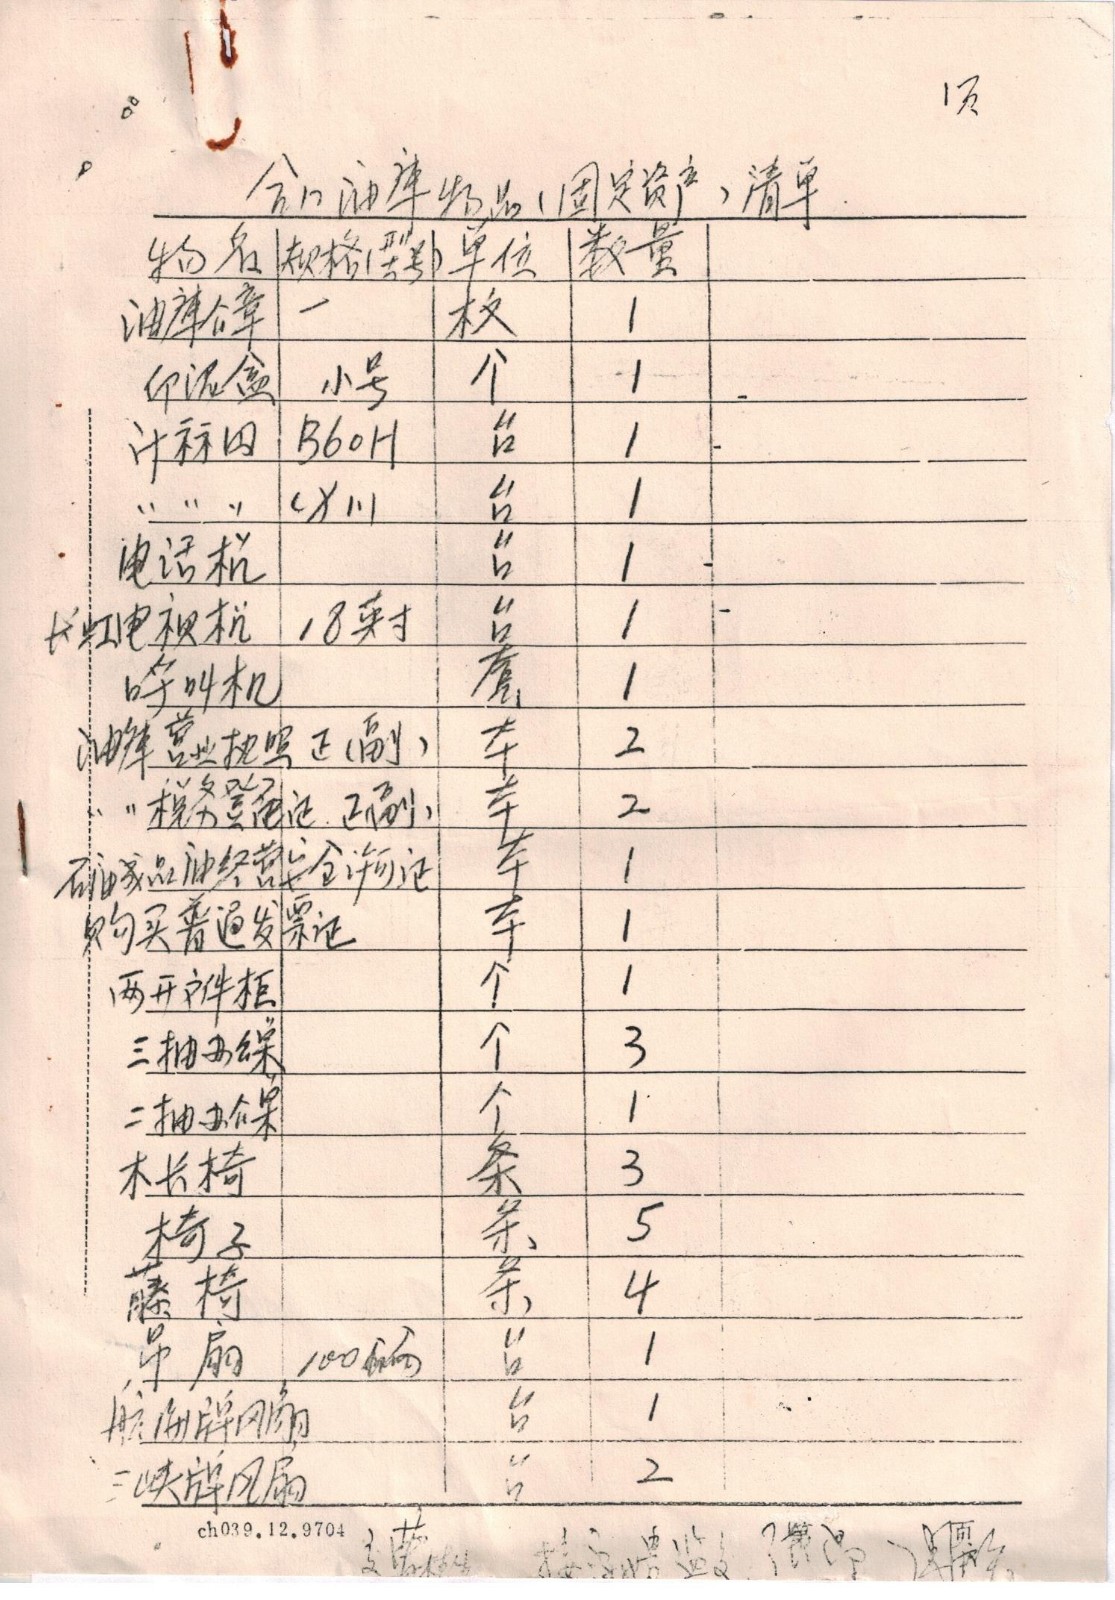 1页
合口油库物品(固定资产)清单
物名 规格(型号) 单位 数量
油库合章 一 枚 1
印泥盒 小号 个 1
计标因 B60H 台 1
〃 〃 〃 台 1
电话机 台 1
长虹电视机 18英寸 台 1
呼叫机 套 1
油库营业执照正(副) 本 2
〃 〃税务登记证 正(副) 本 2
石油成品油经营安全许可证 本 1
购买普通发票证 本 1
两开文件柜 个 1
三抽办公桌 个 3
二抽办公桌 个 1
木长椅 条 3
椅子 条 5
藤椅 条 4
吊扇 台 1
航海牌风扇 台 1
三峡牌风扇 台 2
ch039.12.9704